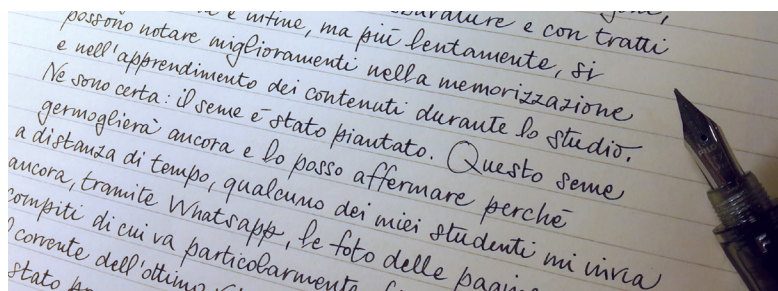 e infine, ma più lentamente, si
e con tratti
possono notare miglioramenti nella memorizzazione
e nell'apprendimento dei contenuti durante lo studio.
Ne sono certa: il seme è stato piantato. Questo seme
germoglierà ancora e lo posso affermare perché
a distanza di tempo, qualcuno dei miei studenti mi invia
ancora, tramite Whatsapp, le foto delle pagine
compiti di cui va particolarmente
corrente dell'ottimo
stato